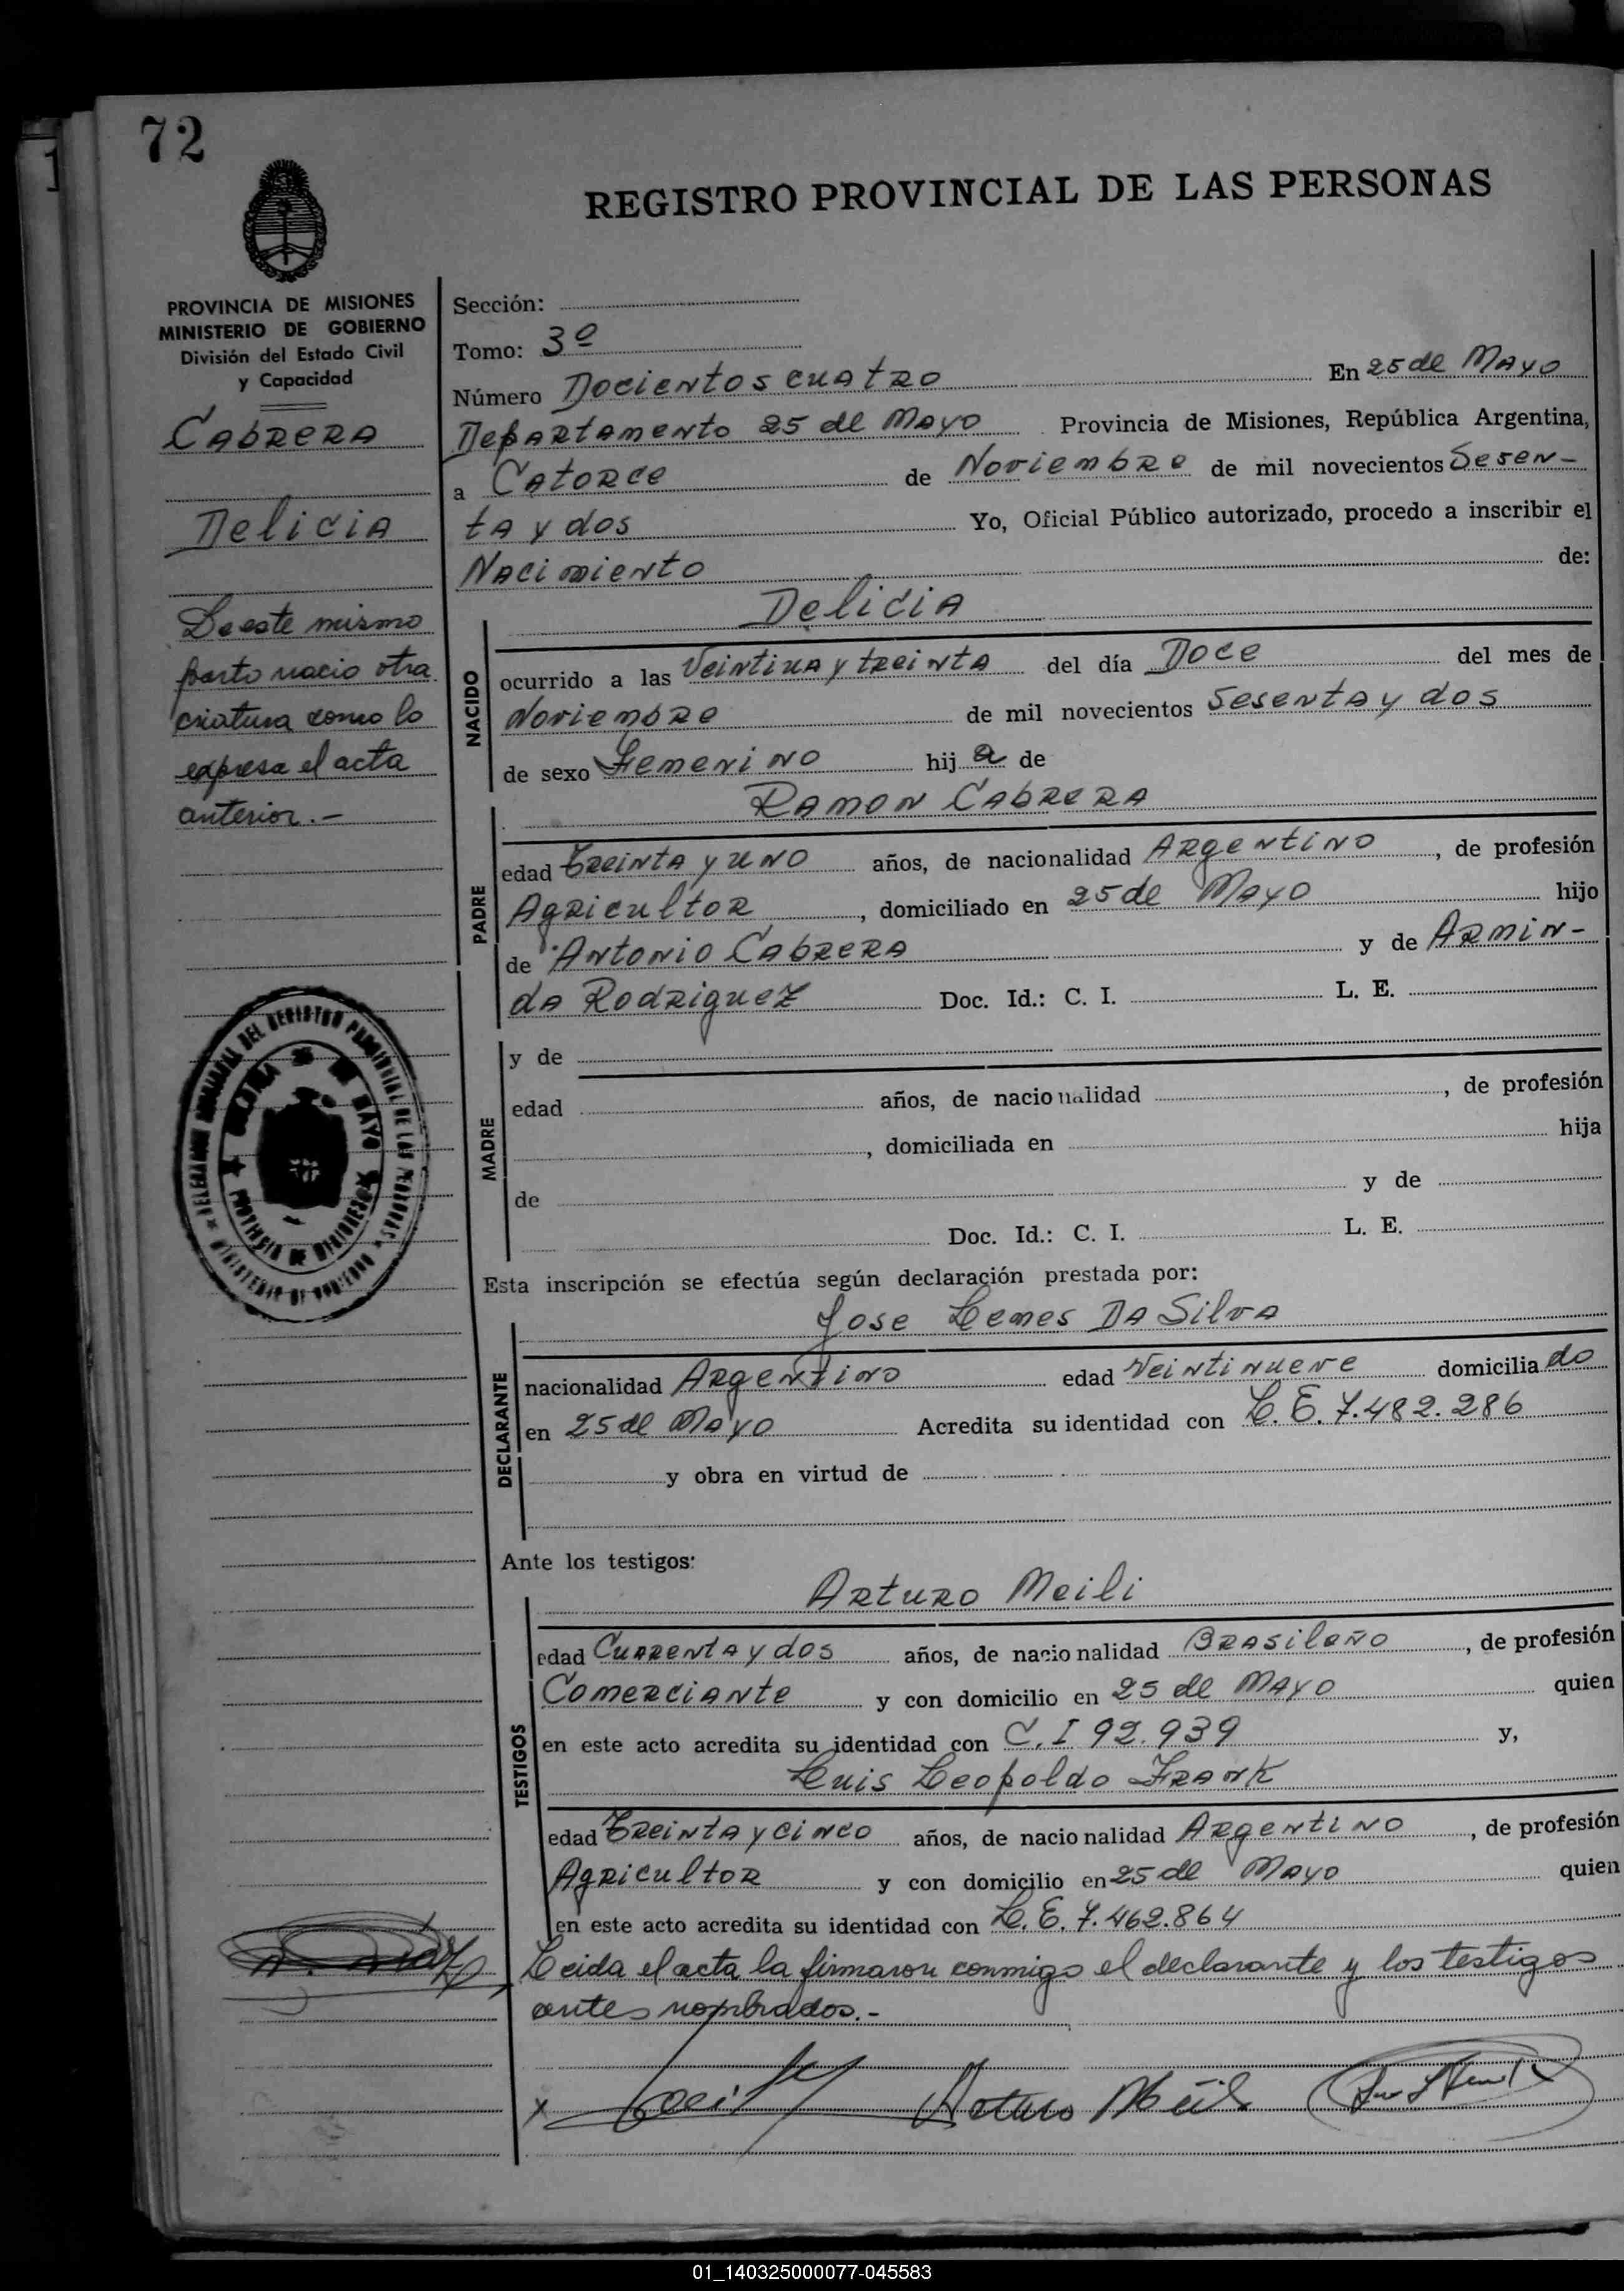 72
REGISTRO PROVINCIAL DE LAS PERSONAS
PROVINCIA DE MISIONES
MINISTERIO DE GOBIERNO
División del Estado Civil
y Capacidad
CABRERA
Delicia
De este mismo
parto nacio otra
criatura como lo
expresa el acta
anterior.-
Sección:
Tomo: 3º
Número Docientos cuatro En 25 de Mayo
Departamento 25 de Mayo Provincia de Misiones, República Argentina,
a Catorce de Noviembre de mil novecientos Sesen-
ta y dos Yo, Oficial Público autorizado, procedo a inscribir el
Nacimiento de:
Delicia
NACIDO
ocurrido a las Veintiuna y treinta del día Doce del mes de
Noviembre de mil novecientos Sesenta y dos
de sexo Femenino hij a de
Ramon Cabrera
PADRE
edad Treinta y uno años, de nacionalidad Argentino, de profesión
Agricultor, domiciliado en 25 de Mayo hijo
de Antonio Cabrera y de Armin-
da Rodriguez Doc. Id.: C. I. L. E.
MADRE
y de
edad años, de nacionalidad , de profesión
, domiciliada en hija
de y de
Doc. Id.: C. I. L. E.
Esta inscripción se efectúa según declaración prestada por:
Jose Lemes Da Silva
DECLARANTE
nacionalidad Argentino edad Veintinueve domicilia do
en 25 de Mayo Acredita su identidad con L. E. 7.482.286
y obra en virtud de
Ante los testigos:
Arturo Meili
TESTIGOS
edad Cuarenta y dos años, de nacionalidad Brasileño, de profesión
Comerciante y con domicilio en 25 de Mayo quien
en este acto acredita su identidad con C. I 92.939 y,
Luis Leopoldo Frank
edad Treinta y cinco años, de nacionalidad Argentino, de profesión
Agricultor y con domicilio en 25 de Mayo quien
en este acto acredita su identidad con L. E. 7.462.864
Leida el acta la firmaron conmigo el declarante y los testigos
antes nombrados.-
x Arturo Meili
01_140325000077-045583